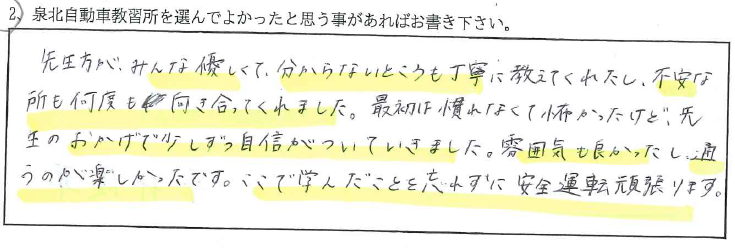 2、泉北自動車教習所を選んでよかったと思う事があればお書き下さい。
先生方が、みんな優しくて、分からないところも丁寧に教えてくれたし、不安な
所も何度も向き合ってくれました。最初は慣れなくて怖かったけど、先
生のおかげで少しずつ自信がついていきました。雰囲気も良かったし、通
うのが楽しかったです。ここで学んだことを忘れずに安全運転頑張ります。